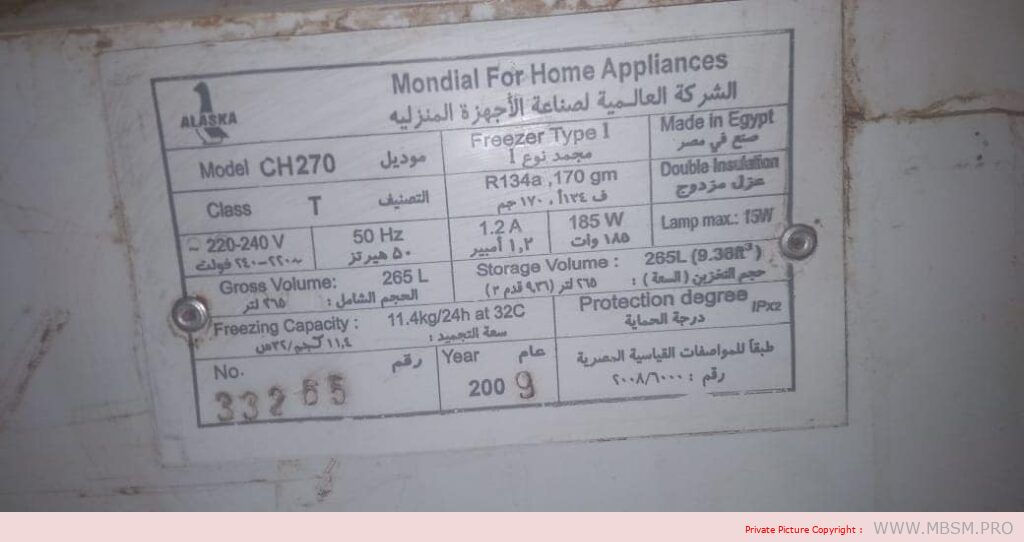 ALASKA
Mondial For Home Appliances
الشركة العالمية لصناعة الأجهزة المنزليه
Model CH270 موديل
Freezer Type I
مجمد نوع I
Made in Egypt
صنع في مصر
Class T التصنيف
R134a ,170 gm
ف ١٣٤أ ، ١٧٠ جم
Double Insulation
عزل مزدوج
~ 220-240 V
~٢٢٠-٢٤٠ فولت
50 Hz
٥٠ هيرتز
1.2 A
١,٢ أمبير
185 W
١٨٥ وات
Lamp max.: 15W
Gross Volume: 265 L
الحجم الشامل : ٢٦٥ لتر
Storage Volume : 265L (9.36ft³)
حجم التخزين ( السعة ) : ٢٦٥ لتر (٩,٣٦ قدم ٣)
Freezing Capacity : 11.4kg/24h at 32C
سعة التجميد : ١١,٤ كجم/٢٤س
Protection degree IPX2
درجة الحماية
No. رقم
33265
Year عام
2009
طبقاً للمواصفات القياسية المصرية
رقم : ٢٠٠٨/٦٠٠٠
Private Picture Copyright : WWW.MBSM.PRO